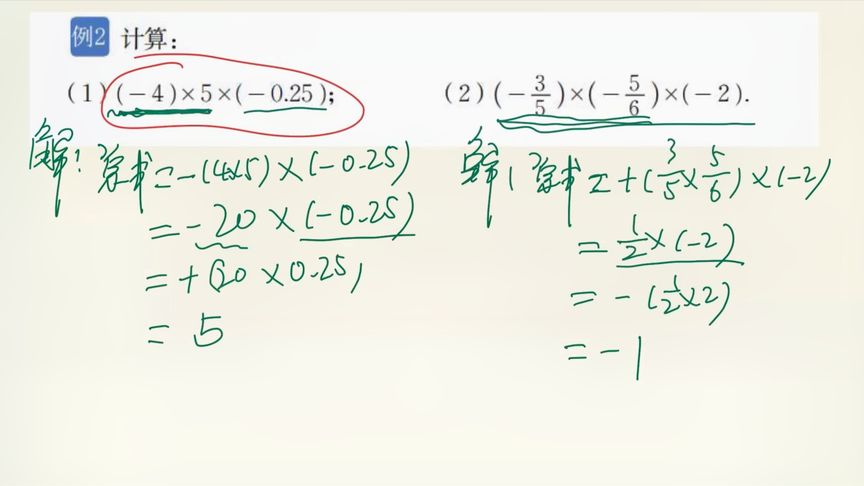 例2 计算：
（1）(－4)×5×(－0.25)；
（2）(－3/5)×(－5/6)×(－2).
解：原式=-(4×5)×(-0.25)
=-20×(-0.25)
=+(20×0.25)
=5
解：原式=+(3/5×5/6)×(-2)
=1/2×(-2)
=-(1/2×2)
=-1